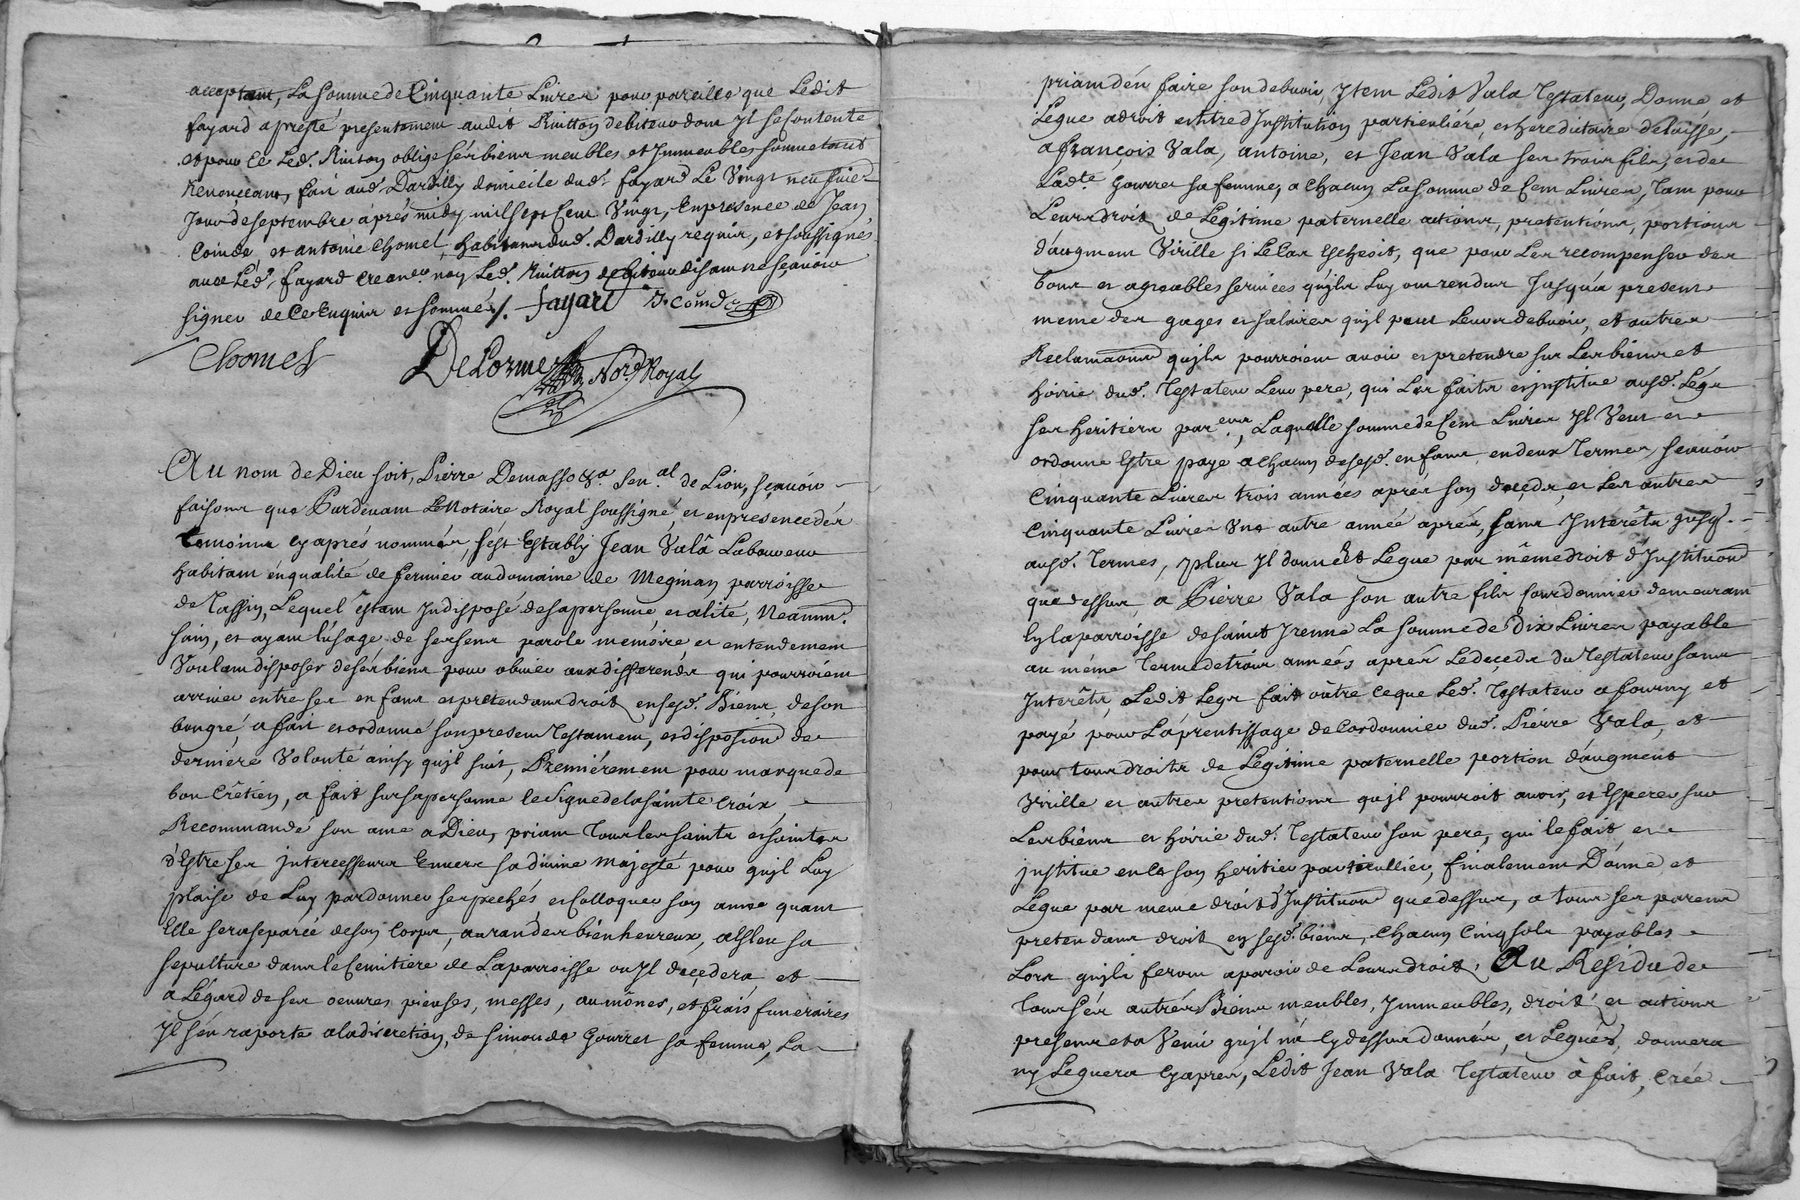 acceptant, La somme de Cinquante Livres pour pareille que Ledit
fayard a presté presentement audit Ruitton debiteur dont Il se contente
et pour ce Led. Ruitton oblige ses biens meubles et Immeubles soumettant
Renonceant, fait aud. Dardilly domicile dud. fayard Le Vingt neufvie
Jour de septembre aprés midy mil sept Cent Vingt, En presence de Jean
Coinde, et antoine Chomel, habitans dud. Dardilly requis, et soussignés
avec Led. fayard Creancr. non Led. Ruitton debiteur disant ne sçavoir
signer de Ce Enquis et sommé ./. fayard J. Coinde
Chomel DeLorme Nore. Royal
Au nom de Dieu soit, Pierre Demasso &a. Sen.al de Lion, sçavoir
faisons que Pardevant Le Notaire Royal soussigné, et en presence des
temoins cy aprés nommés, s'est Estably Jean Valâ Laboureur
habitant en qualité de fermier au domaine de Meginan parroisse
de Tassin, Lequel êstant Indisposé de sa personne, et alité, Neanm.
sain, et ayant l'usage de ses sens parole memoire et entendement
Voulant disposer de ses biens pour obvier aux differends qui pourroient
arriver entre ses enfans et pretendans droit en sesd. Biens, de son
bongré a fait et ordonné son present Testament, et disposion de
derniére Volonté ainsy qu'jl suit, Premiérement pour marque de
bon Crêtien, a fait sur sa personne le signe de la sainte Croix
Recommandé son ame a Dieu, priant Tous les saints et saintes
d'Estre ses jntercesseurs Envers sa divine Majesté pour qu'jl Luy
plaise de Luy pardonner ses pechés et Colloquer son ame quant
Elle sera separée de son Corps, au ran des bienheureux, a Esleu sa
sepulture dans le Cemitiere de La parroisse ou Jl decedera, et
a Légard de ses oeuvres pieuses, messes, aumônes, et frais funeraires
Jl s'en raporte a la discretion, de Simonde Gourret sa femme, La
priant d'en faire son debvoir, Jtem Ledit Vala Testateur, Donne et
Legue a droit et titre d'Jnstitution particuliere, et hereditaire delaisse,
a françois Vala, antoine, et Jean Vala ses trois fils, et de
Lad.te Gourret sa femme, a Chacun La somme de Cent Livres, Tant pour
Leurs droits de Legitime paternelle actions, pretentions, portions
d'augment Virille si Le Cas Escheoit, que pour Les recompenser des
bons et agreables services qu'jls Luy ont rendus Jusqu'a present
meme des gages et salaires qu'jl peut Leurs debvoir, et autres
Reclamaons qu'jls pourroient avoir et pretendre sur Les biens et
hoirie dud. Testateur Leur pere, qui Les faits et jnstitue ausd. Legs
ses heritiers par.ers, Laquelle somme de Cent Livres Jl Veut et
ordonne Estre payé a Chacun de sesd. enfans en deux Termes, sçavoir
Cinquante Livres trois années aprés son decede, et Les autres
Cinquante Livres Une autre année aprés, sans Interêts jusq.
ausd. Termes, plus Jl donne et Legue par même droit d'Institution
que dessus, a Pierre Vala son autre fils Cordonnier demeurant
En la parroisse de saint Jrenné La somme de dix Livres payable
au même Terme de trois années aprés Le decede du Testateur sans
Interêts, Ledit Legs fait outre ce que Led. Testateur a fourny et
payé pour L'aprentissage de Cordonnier dud. Piérre Vala, et
pour tous droits de Légitime paternelle portion d'augment
Virille et autres pretentions qu'jl pourroit avoir, et Esperer sur
Les biens et hoirie dud. Testateur son pere, qui le fait et
jnstitue en Ce son heritier particullier, finalement Donne et
Legue par meme droit d'Institution que dessus, a tous ses parens
pretendans droit en sesd. biens, Chacun Cinq sols payables
Lors qu'jls feront aparoir de Leurs droits, Au Residu de
Tous sés autrés Biens meubles, Jmmeubles, droits et actions
presens et a Venir qu'jl n'a Cy dessus donnés, et Legués, donnera
ny Leguera Cy aprés, Ledit Jean Vala Testateur à fait, Créé